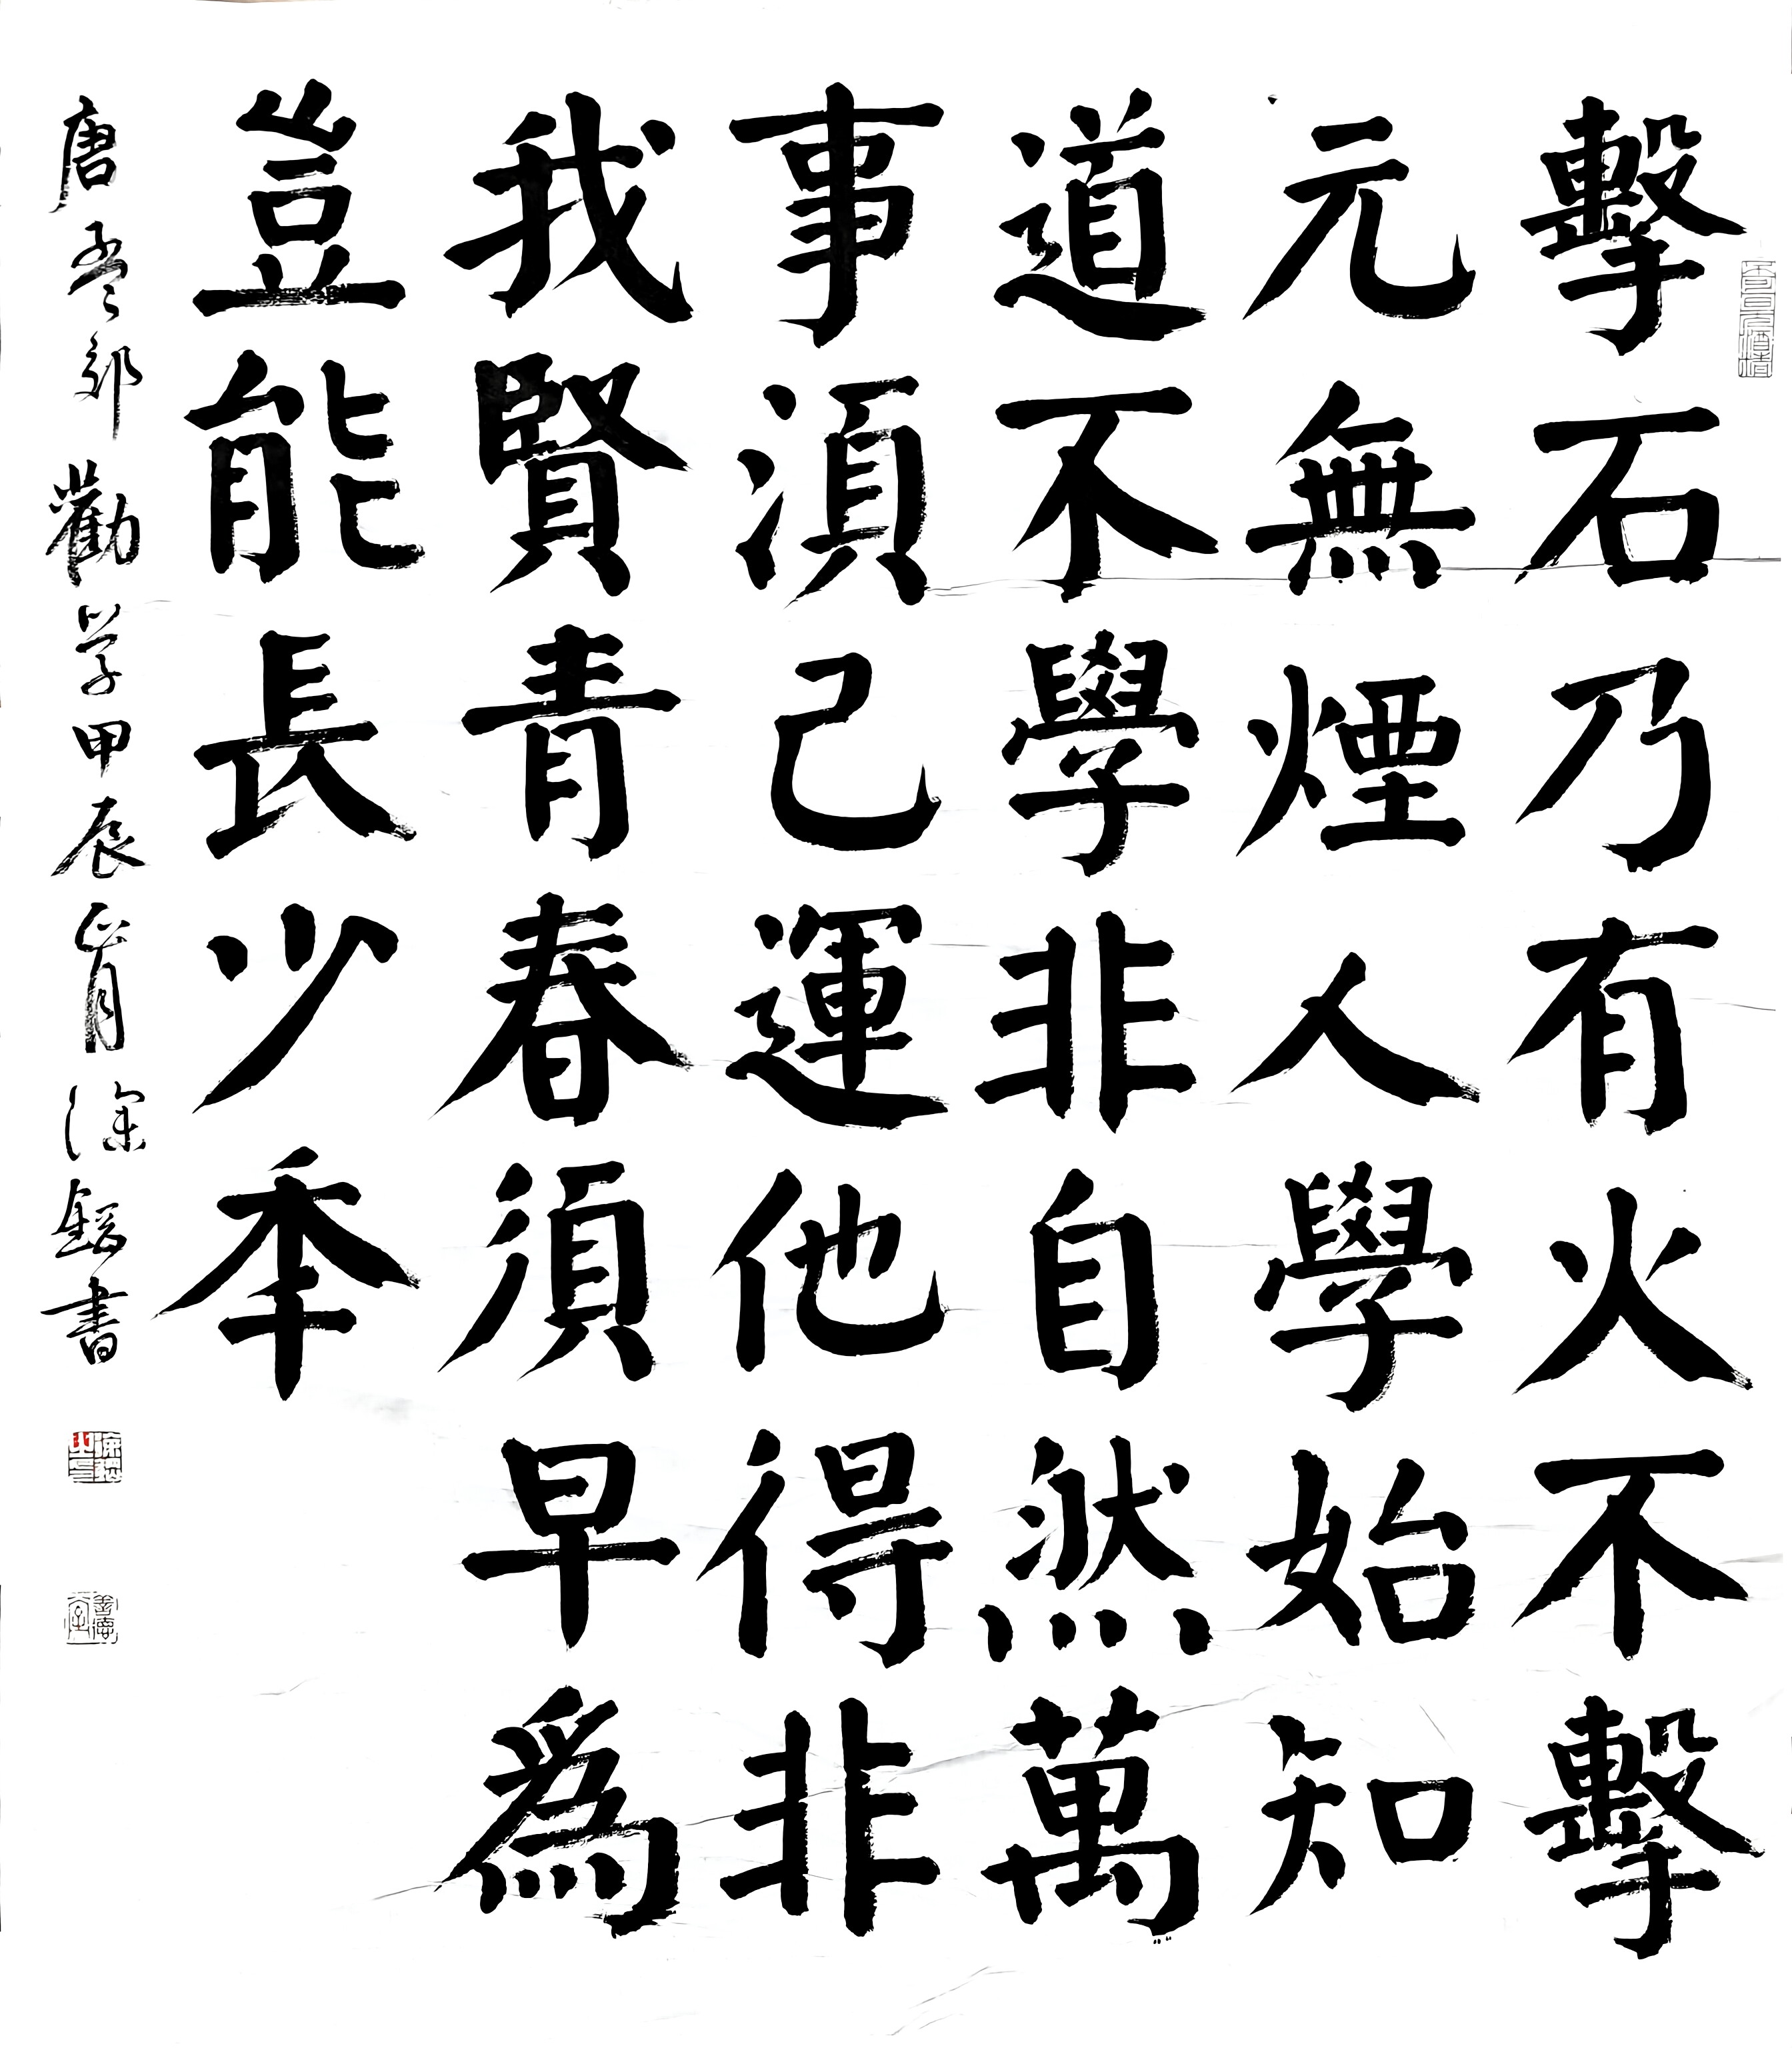 擊石乃有火不擊
元無煙人學始知
道不學非自然萬
事湏己運他得非
我賢青春須早爲
豈能長少秊
唐孟郊勸学甲辰書